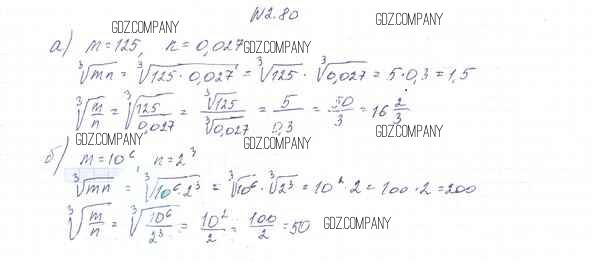 N2.80
GDZ.COMPANY GDZ.COMPANY
а) m=125, n=0,027 GDZ.COMPANY
∛mn = ∛125·0,027 = ∛125 · ∛0,027 = 5·0,3 = 1,5
∛m/n = ∛125/0,027 = ∛125/∛0,027 = 5/0,3 = 50/3 = 16 2/3
GDZ.COMPANY GDZ.COMPANY GDZ.COMPANY
б) m=10⁶, n=2³
∛mn = ∛10⁶·2³ = ∛10⁶ · ∛2³ = 10²·2 = 100·2 = 200
∛m/n = ∛10⁶/2³ = 10²/2 = 100/2 = 50 GDZ.COMPANY